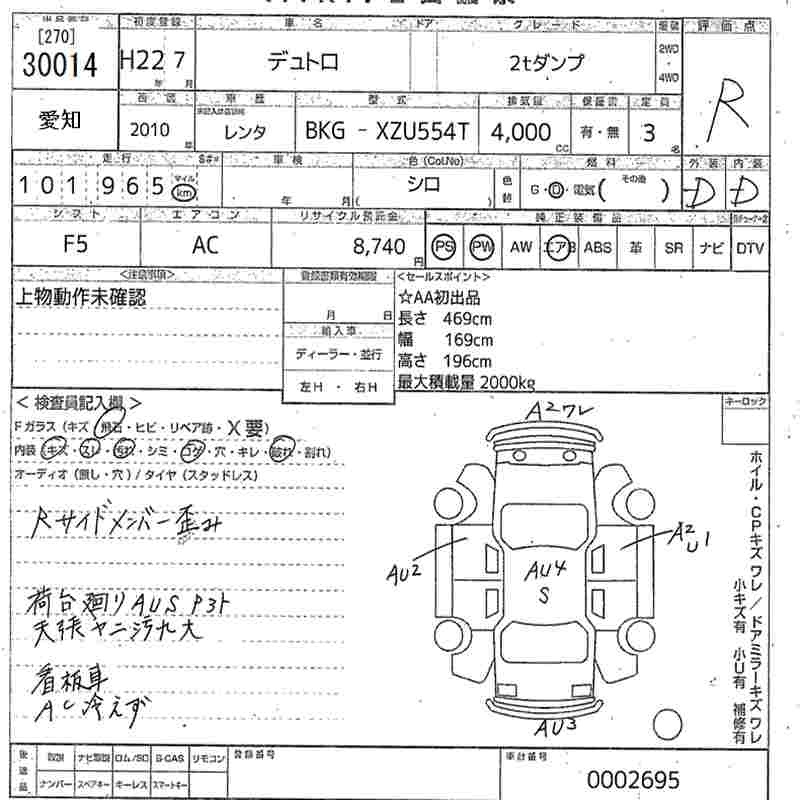 [270]
30014
初度登録
車名
ドア
グレード
評価点
H22 7
年 月
デュトロ
2tダンプ
2WD
4WD
R
愛知
2010
年
車歴
レンタ
型式
BKG - XZU554T
排気量
4,000
CC
保証書
有・無
定員
3
名
走行
車検
色(Col.No)
燃料
外装
内装
101965
マイル
km
年 月
シロ
色替
G・D・電気(その他)
D
D
シフト
エアコン
リサイクル預託金
純正装備品
F5
AC
8,740
円
PS
PW
AW
エアB
ABS
革
SR
ナビ
DTV
<注意事項>
上物動作未確認
登録書類有効期限
月 日
輸入車
ディーラー・並行
左H ・ 右H
<セールスポイント>
☆AA初出品
長さ 469cm
幅 169cm
高さ 196cm
最大積載量 2000kg
<検査員記入欄>
Fガラス (キズ・飛石・ヒビ・リペア跡・X要)
内装 (キズ・スレ・汚れ・シミ・コゲ・穴・キレ・破れ・割れ)
オーディオ (無し・穴) / タイヤ (スタッドレス)
Rサイドメンバー歪み
荷台廻りAUS Pヨト
天張ヤニ汚れ大
看板車
AC冷えず
キーロック
A2ワレ
AU2
A2
U1
AU4
S
AU3
ホイル・CPキズワレ/ドアミラーキズワレ
小キズ有 小U有 補修有
後送品
取説
ナビ取説
ロム/SD
B-CAS
リモコン
ナンバー
スペアキー
キーレス
スマートキー
登録番号
車台番号
0002695